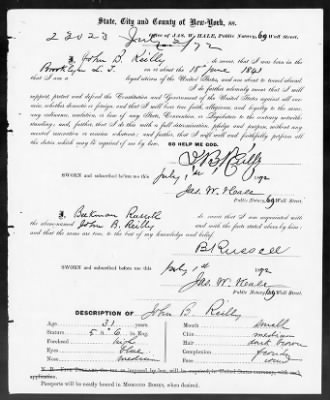 State, City and County of New-York, ss.
23023 Office of JAS. W. HALE, Notary Public, 69 Wall Street,
I, John B. Reilly do swear that I was born in the
Brooklyn L. I. on or about the 18th June 1841
that I am a citizen of the United States, and am about to travel abroad.
I do further solemnly swear that I will
support, protect and defend the Constitution and Government of the United States against all ene-
mies, whether domestic or foreign, and that I will bear true faith, allegiance, and loyalty to the same,
any ordinance, resolution, or law of any State, Convention, or Legislature to the contrary notwith-
standing; and, further, that I do this with a full determination, pledge and purpose, without any
mental reservation or evasion whatever; and further, that I will well and faithfully perform all
the duties which may be required of me by law.
SO HELP ME GOD.
J B Reilly
SWORN and subscribed before me this July 1st 1872
Jas. W. Hale
Notary Public, 69 Wall Street.
I, Russell do swear that I am acquainted with
the above-named John B. Reilly and with the facts stated above by him;
and that the same are true, to the best of my knowledge and belief.
B Russell
SWORN and subscribed before me this July 1st 1872
Jas. W. Hale
Notary Public, 69 Wall Street.
DESCRIPTION of John B. Reilly
Age 31 Mouth small
Stature 5 ft 6 in. Eng. Chin medium
Forehead high Hair dark brown
Eyes blue Complexion
Nose medium Face round
application.
Passports will be neatly bound in MOROCCO BOOKS, when desired.